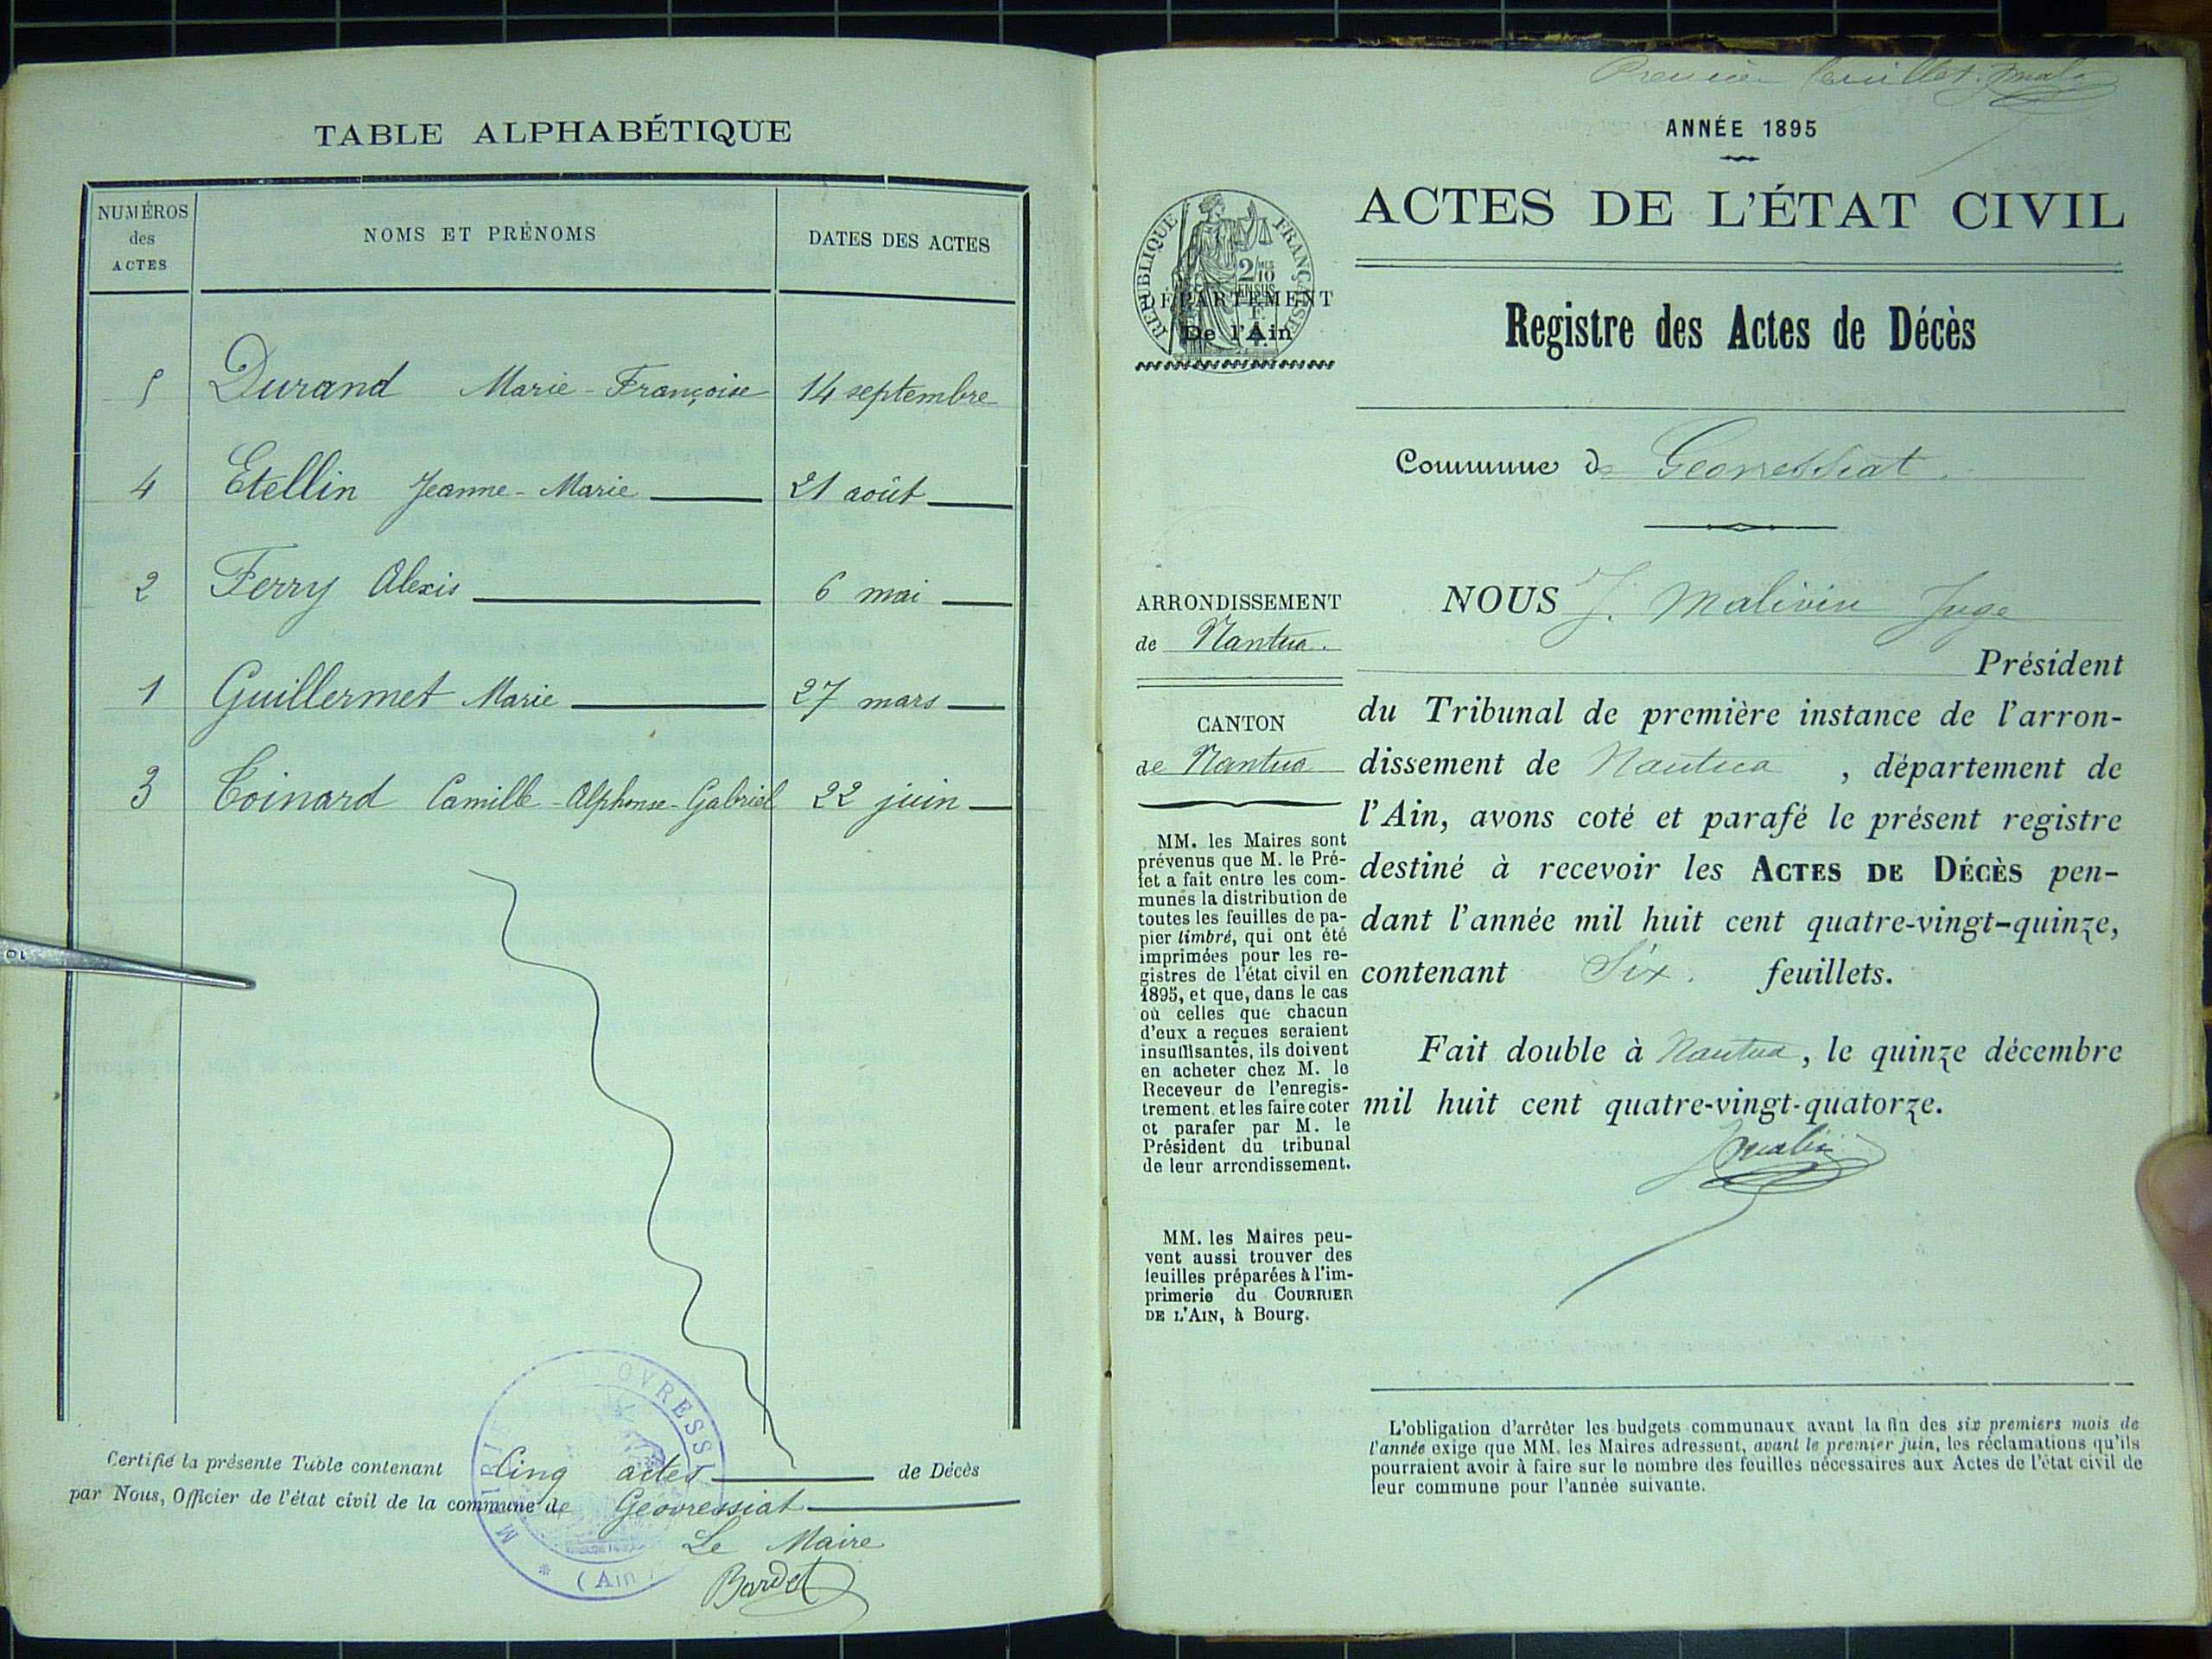 TABLE ALPHABÉTIQUE
NUMÉROS
des
ACTES
NOMS ET PRÉNOMS
DATES DES ACTES
5 Durand Marie-Françoise 14 septembre
4 Etellin Jeanne-Marie 21 août
2 Ferry Alexis 6 mai
1 Guillermet Marie 27 mars
3 Coinard Camille-Alphonse-Gabriel 22 juin
Certifié la présente Table contenant Cinq actes de Décès
par Nous, Officier de l'état civil de la commune de Geovressiat
Le Maire
Bardet
MAIRIE OVRESSI
(Ain)
Premier feuillet.
ANNÉE 1895
ACTES DE L'ÉTAT CIVIL
RÉPUBLIQUE FRANÇAISE
2/10
EN SUS
DÉPARTEMENT
De l'Ain
Registre des Actes de Décès
Commune de Geovressiat.
ARRONDISSEMENT
de Nantua.
CANTON
de Nantua
MM. les Maires sont
prévenus que M. le Pré-
fet a fait entre les com-
munes la distribution de
toutes les feuilles de pa-
pier timbré, qui ont été
imprimées pour les re-
gistres de l'état civil en
1895, et que, dans le cas
où celles que chacun
d'eux a reçues seraient
insuffisantes, ils doivent
en acheter chez M. le
Receveur de l'enregis-
trement et les faire coter
et parafer par M. le
Président du tribunal
de leur arrondissement.
MM. les Maires peu-
vent aussi trouver des
feuilles préparées à l'im-
primerie du COURRIER
DE L'AIN, à Bourg.
NOUS J. Malivin Juge
Président
du Tribunal de première instance de l'arron-
dissement de Nantua, département de
l'Ain, avons coté et parafé le présent registre
destiné à recevoir les ACTES DE DÉCÈS pen-
dant l'année mil huit cent quatre-vingt-quinze,
contenant Six. feuillets.
Fait double à Nantua, le quinze décembre
mil huit cent quatre-vingt-quatorze.
L'obligation d'arrêter les budgets communaux avant la fin des six premiers mois de
l'année exige que MM. les Maires adressent, avant le premier juin, les réclamations qu'ils
pourraient avoir à faire sur le nombre des feuilles nécessaires aux Actes de l'état civil de
leur commune pour l'année suivante.